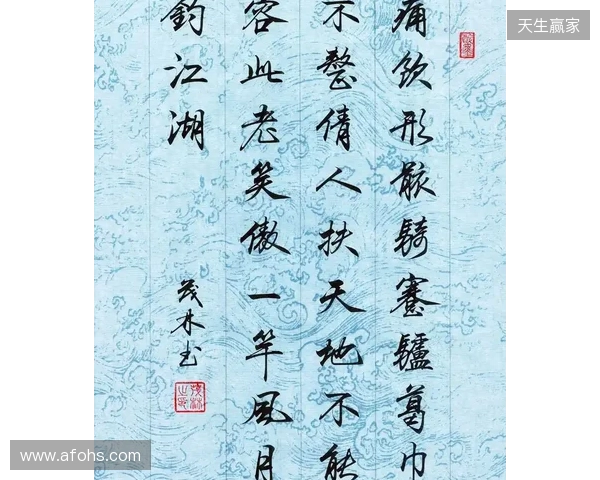 痛飲形骸騎蹇驢葛巾
不整倩人扶天地不能
容此老笑傲一竿風月
釣江湖
茂林書
天生赢家
www.afohs.com